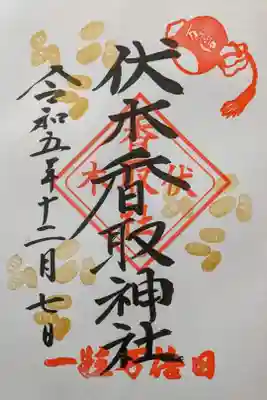 伏木香取神社
令和五年十二月七日
一粒万倍日